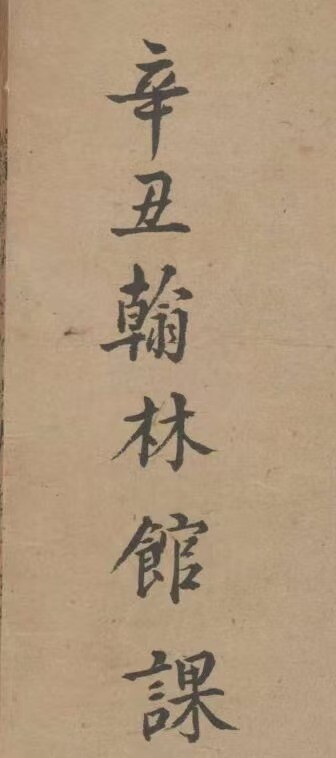 辛丑翰林館課